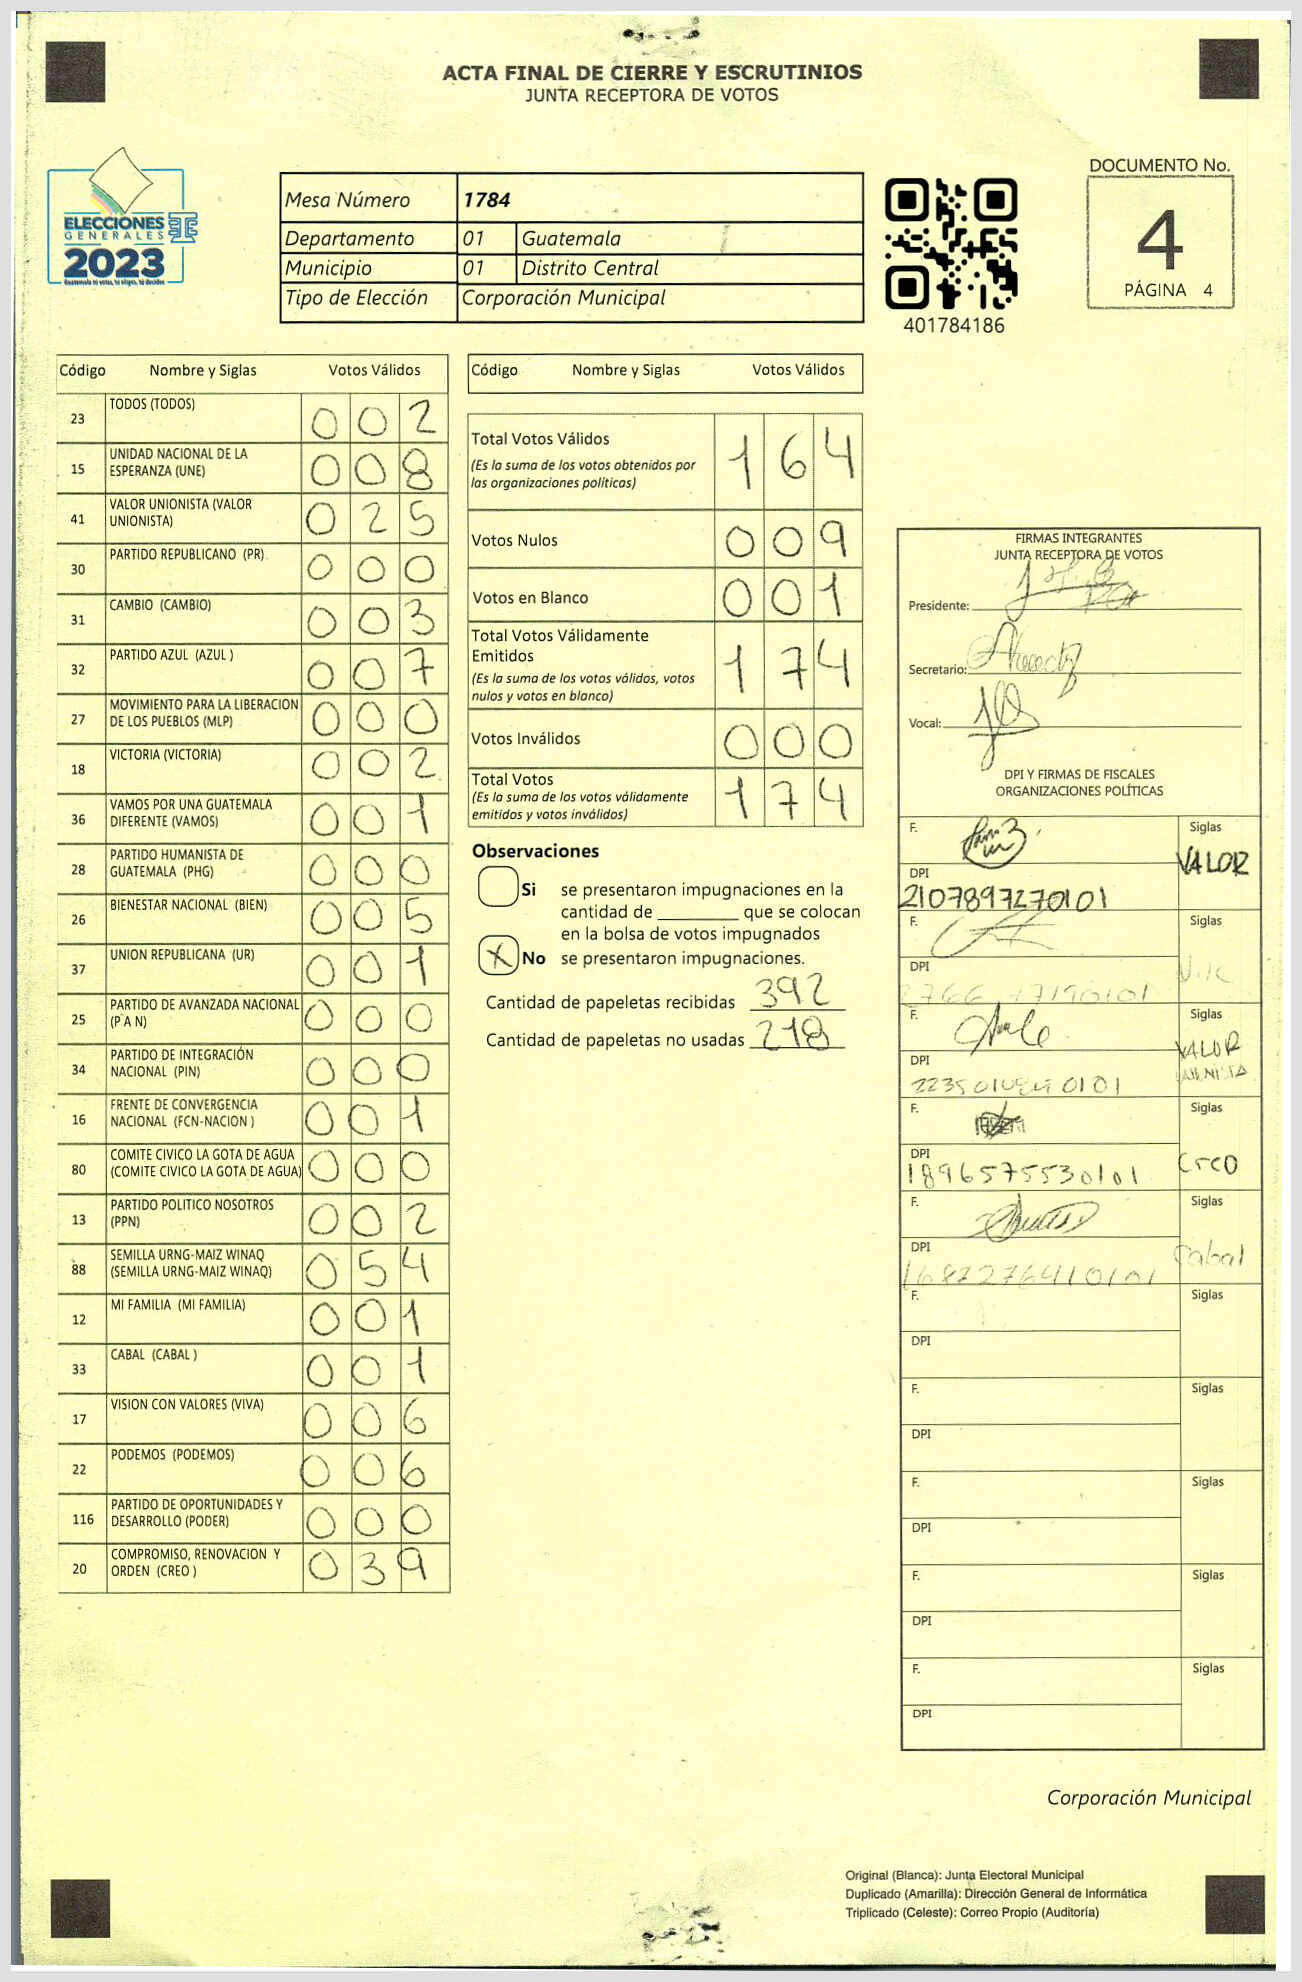 ACTA FINAL DE CIERRE Y ESCRUTINIOS
JUNTA RECEPTORA DE VOTOS
ELECCIONES
GENERALES
2023
Guatemala tú votas, tú eliges, tú decides
Mesa Número 1784
Departamento 01 Guatemala
Municipio 01 Distrito Central
Tipo de Elección Corporación Municipal
401784186
DOCUMENTO No.
4
PÁGINA 4
Código Nombre y Siglas Votos Válidos
23 TODOS (TODOS) 0 0 2
15 UNIDAD NACIONAL DE LA
ESPERANZA (UNE) 0 0 8
41 VALOR UNIONISTA (VALOR
UNIONISTA) 0 2 5
30 PARTIDO REPUBLICANO (PR) 0 0 0
31 CAMBIO (CAMBIO) 0 0 3
32 PARTIDO AZUL (AZUL ) 0 0 7
27 MOVIMIENTO PARA LA LIBERACION
DE LOS PUEBLOS (MLP) 0 0 0
18 VICTORIA (VICTORIA) 0 0 2
36 VAMOS POR UNA GUATEMALA
DIFERENTE (VAMOS) 0 0 1
28 PARTIDO HUMANISTA DE
GUATEMALA (PHG) 0 0 0
26 BIENESTAR NACIONAL (BIEN) 0 0 5
37 UNION REPUBLICANA (UR) 0 0 1
25 PARTIDO DE AVANZADA NACIONAL
(P A N) 0 0 0
34 PARTIDO DE INTEGRACIÓN
NACIONAL (PIN) 0 0 0
16 FRENTE DE CONVERGENCIA
NACIONAL (FCN-NACION ) 0 0 1
80 COMITE CIVICO LA GOTA DE AGUA
(COMITE CIVICO LA GOTA DE AGUA) 0 0 0
13 PARTIDO POLITICO NOSOTROS
(PPN) 0 0 2
88 SEMILLA URNG-MAIZ WINAQ
(SEMILLA URNG-MAIZ WINAQ) 0 5 4
12 MI FAMILIA (MI FAMILIA) 0 0 1
33 CABAL (CABAL ) 0 0 1
17 VISION CON VALORES (VIVA) 0 0 6
22 PODEMOS (PODEMOS) 0 0 6
116 PARTIDO DE OPORTUNIDADES Y
DESARROLLO (PODER) 0 0 0
20 COMPROMISO, RENOVACION Y
ORDEN (CREO ) 0 3 9
Código Nombre y Siglas Votos Válidos
Total Votos Válidos 1 6 4
(Es la suma de los votos obtenidos por
las organizaciones políticas)
Votos Nulos 0 0 9
Votos en Blanco 0 0 1
Total Votos Válidamente
Emitidos 1 7 4
(Es la suma de los votos válidos, votos
nulos y votos en blanco)
Votos Inválidos 0 0 0
Total Votos 1 7 4
(Es la suma de los votos válidamente
emitidos y votos inválidos)
Observaciones
Si se presentaron impugnaciones en la
cantidad de ________ que se colocan
en la bolsa de votos impugnados
X No se presentaron impugnaciones.
Cantidad de papeletas recibidas 392
Cantidad de papeletas no usadas 218
FIRMAS INTEGRANTES
JUNTA RECEPTORA DE VOTOS
Presidente:
Secretario:
Vocal:
DPI Y FIRMAS DE FISCALES
ORGANIZACIONES POLÍTICAS
F. Siglas
VALOR
DPI
2107897270101
F. Siglas
DPI
F. Siglas
VALOR
DPI
F. Siglas
DPI Creo
1896575530101
F. Siglas
Cabal
DPI
1687276410101
F. Siglas
DPI
F. Siglas
DPI
F. Siglas
DPI
F. Siglas
DPI
F. Siglas
DPI
Corporación Municipal
Original (Blanca): Junta Electoral Municipal
Duplicado (Amarilla): Dirección General de Informática
Triplicado (Celeste): Correo Propio (Auditoría)